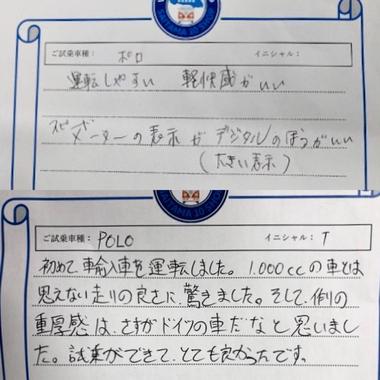 ご試乗車種： ポロ イニシャル：
運転しやすい 軽快感がいい
スピードメーターの表示がデジタルのほうがいい
（大きい表示）
ご試乗車種： POLO イニシャル： T
初めて輸入車を運転しました。1.000ccの車とは
思えない走りの良さに驚きました。そして、例の
重厚感は、さすがドイツの車だなと思いまし
た。試乗ができて、とても良かったです。